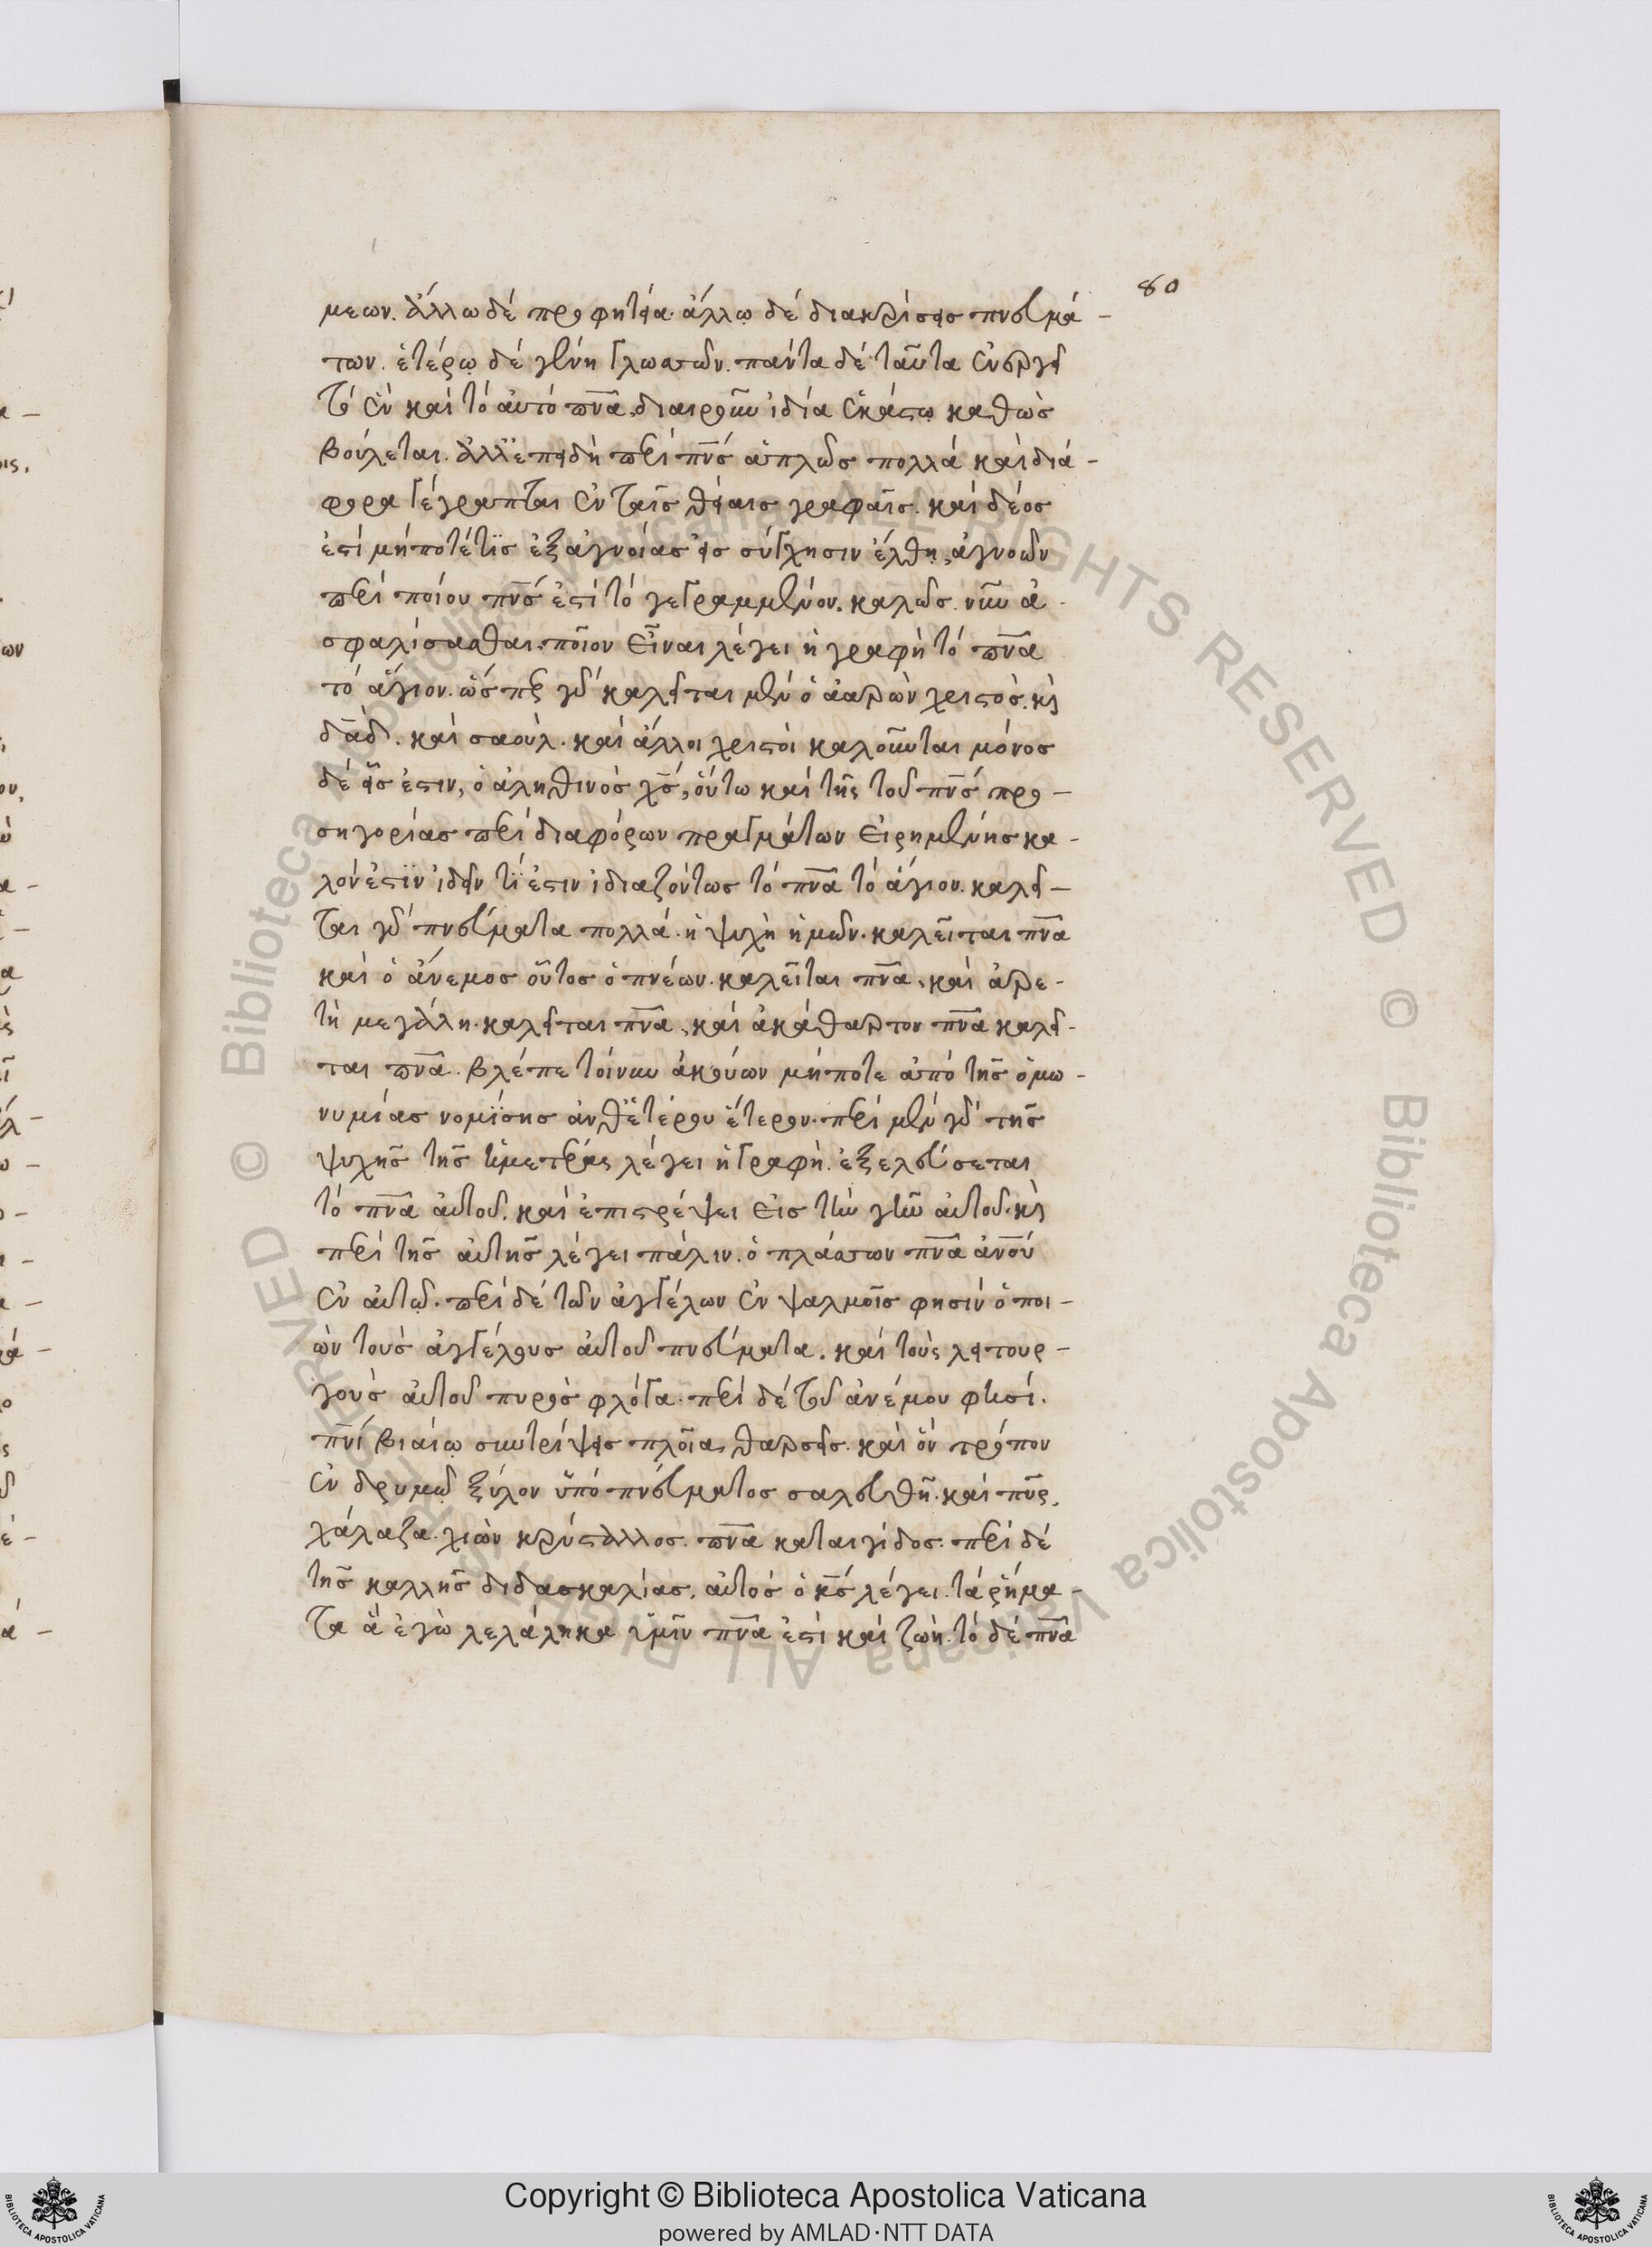 80
μεων. ἄλλω δέ προφητεία. ἄλλῳ δέ διακρίσεις πνευμά-
των. ἑτέρῳ δέ γένη γλωσσῶν. πάντα δέ ταῦτα ἐνεργεῖ
τό ἓν καί τό αὐτό πνα, διαιροῦν ἰδία ἑκάστῳ καθὼς
βούλεται. ἀλλ' ἐπειδή περί πνσ ἁπλῶς πολλά καί διά-
φορα γέγραπται ἐν ταῖς θείαις γραφαῖς. καί δέος
ἐστί μήποτέ τις ἐξ ἀγνοίας εἰς σύγχησιν ἔλθη, ἀγνοῶν
περί ποίου πνσ ἐστί τό γεγραμμένον. καλῶς νῦν ἀ-
σφαλίσασθαι. ποῖον εἶναι λέγει ἡ γραφή τό πνα
τό ἅγιον. ὥσπερ γάρ καλεῖται μέν ὁ ἀαρών χριστός. κὶ
δαδ. καί σαούλ. καί ἄλλοι χριστοί καλοῦνται μόνος
δέ εἷς ἐστιν, ὁ ἀληθινός χσ, οὕτω καί τῆς τοῦ πνσ προ-
σηγορίας περί διαφόρων πραγμάτων εἰρημένης κα-
λόν ἐστίν ἰδεῖν τί ἐστιν ἰδιαζόντως τό πνα τό ἅγιον. καλεῖ-
ται γάρ πνεύματα πολλά. ἡ ψυχὴ ἡμῶν. καλεῖται πνα
καί ὁ ἄνεμος οὗτος ὁ πνέων. καλεῖται πνα, καί ἀρε-
τὴ μεγάλη. καλεῖται πνα, καί ἀκάθαρτον πνα καλεῖ-
ται πνα. βλέπε τοίνυν ἀκούων μήποτε ἀπό τῆς ὁμω-
νυμίας νομίσης ἀνθ' ἑτέρου ἕτερον. περί μέν γάρ τῆς
ψυχῆς τῆς ἡμετέρας λέγει ἡ γραφή. ἐξελεύσεται
τό πνα αὐτοῦ. καί ἐπιστρέψει εἰς τὴν γῆν αὐτοῦ. κὶ
περί τῆς αὐτῆς λέγει πάλιν. ὁ πλάσσων πνα ἀνου
ἐν αὐτῷ. περί δέ τῶν ἀγγέλων ἐν ψαλμοῖς φησίν ὁ ποι-
ὼν τοὺς ἀγγέλους αὐτοῦ πνεύματα. καί τοὺς λειτουρ-
γοὺς αὐτοῦ πυρὸς φλόγα. περί δέ τοῦ ἀνέμου φησί.
πνι βιαίῳ συντρίψεις πλοῖα θαρσεῖς. καί ὅν τρόπον
ἐν δρυμῷ ξύλον ὑπό πνεύματος σαλευθῆ. καί πῦρ,
χάλαζα. χιὼν κρύσταλλος. πνα καταιγίδος. περί δέ
τῆς καλλῆς διδασκαλίας, αὐτός ὁ κσ λέγει. τά ῥήμα-
τα ἅ ἐγὼ λελάληκα ὑμῖν πνα ἐστί καί ζωή. τό δέ πνα
Copyright © Biblioteca Apostolica Vaticana
powered by AMLAD·NTT DATA